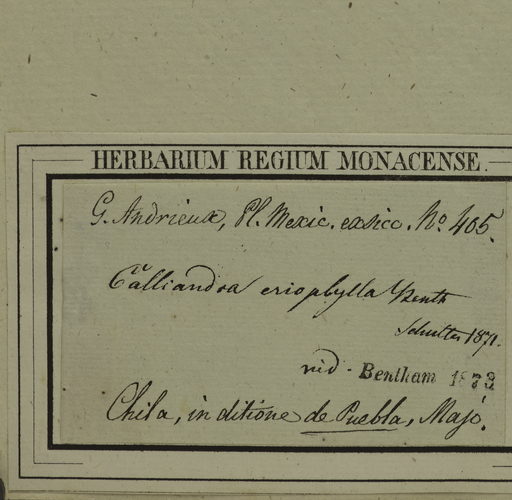 HERBARIUM REGIUM MONACENSE.
G. Andrieux, Pl. Mexic. exsicc. No. 405.
Calliandra eriophylla Benth
1871.
vid. Bentham 1873
Chila, in ditione de Puebla, Majo.